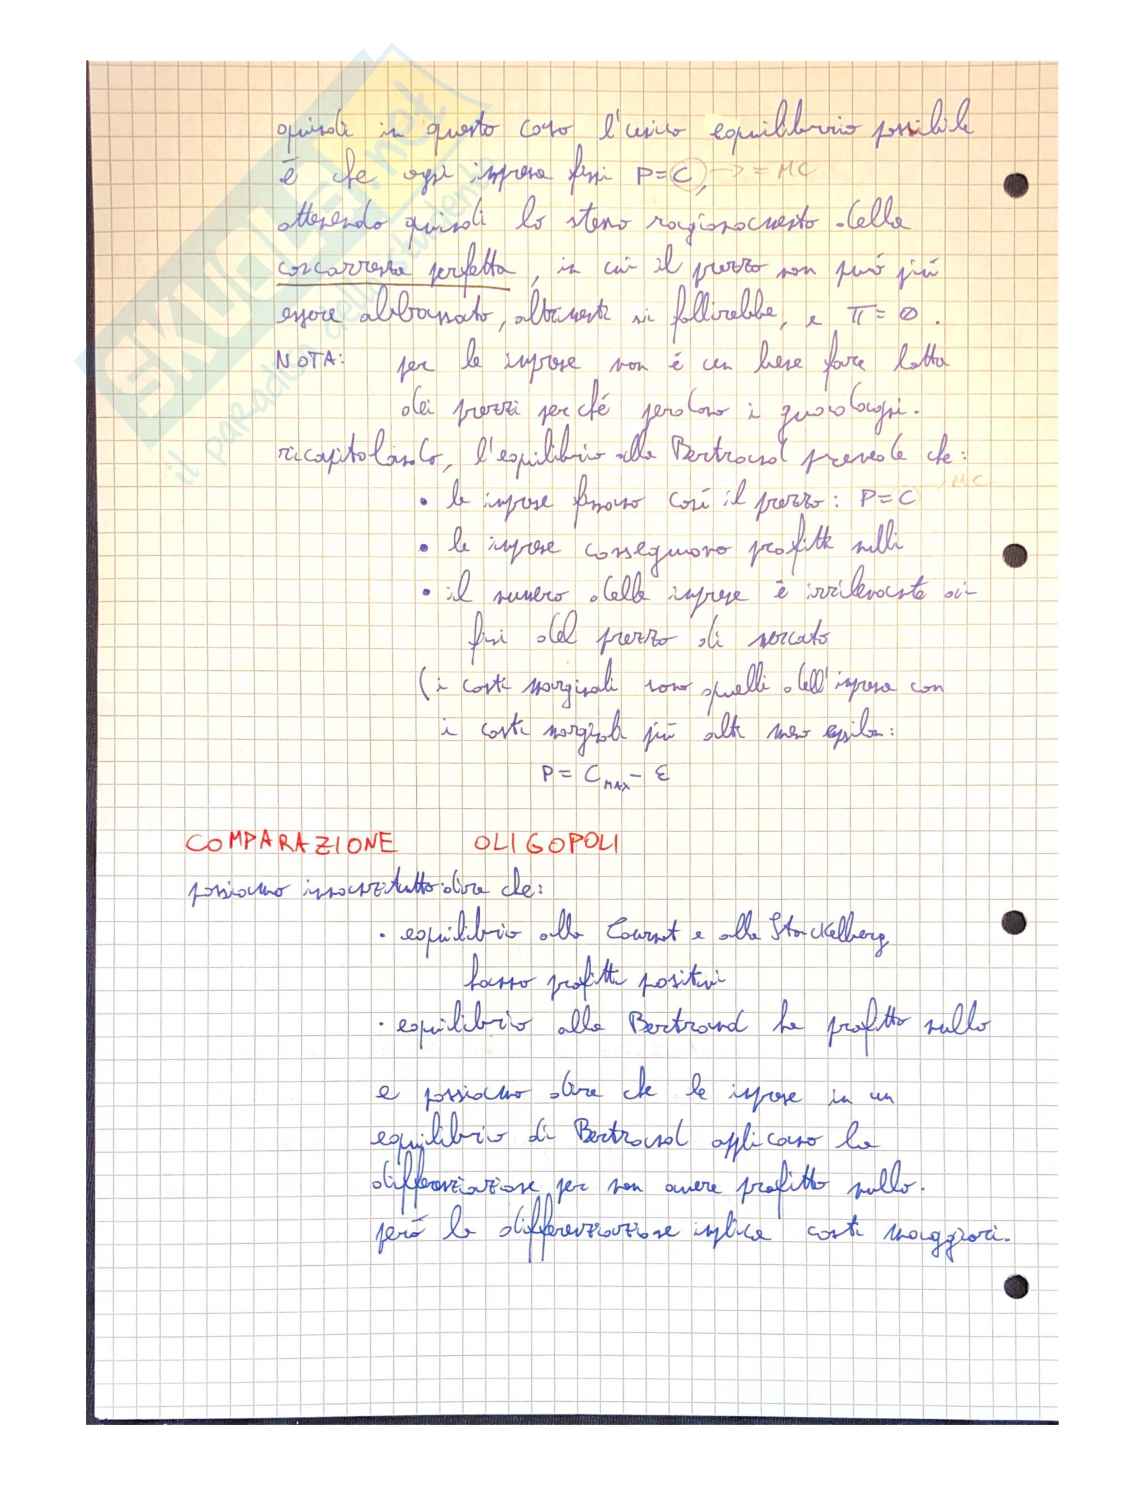 quindi in questo caso l'unico equilibrio possibile
è che ogni impresa fissi P=C, -> = MC
ottenendo quindi lo stesso ragionamento della
concorrenza perfetta, in cui il prezzo non può più
essere abbassato, altrimenti si fallirebbe, e π = 0.
NOTA: per le imprese non è un bene fare lotta
dei prezzi perché perdono i guadagni.
ricapitolando, l'equilibrio alla Bertrand prevede che:
• le imprese fissano così il prezzo: P=C MC
• le imprese conseguono profitti nulli
• il numero delle imprese è irrilevante ai
fini del prezzo di mercato
(i costi marginali sono quelli dell'impresa con
i costi marginali più alti meno epsilon:
P= C MAX - ε
COMPARAZIONE OLIGOPOLI
possiamo innanzitutto dire che:
• equilibrio alla Cournot e alla Stackelberg
hanno profitti positivi
• equilibrio alla Bertrand ha profitto nullo
e possiamo dire che le imprese in un
equilibrio di Bertrand applicano la
differenziazione per non avere profitto nullo.
però la differenziazione implica costi maggiori.
SKUOLA.net
il paradiso dello studente